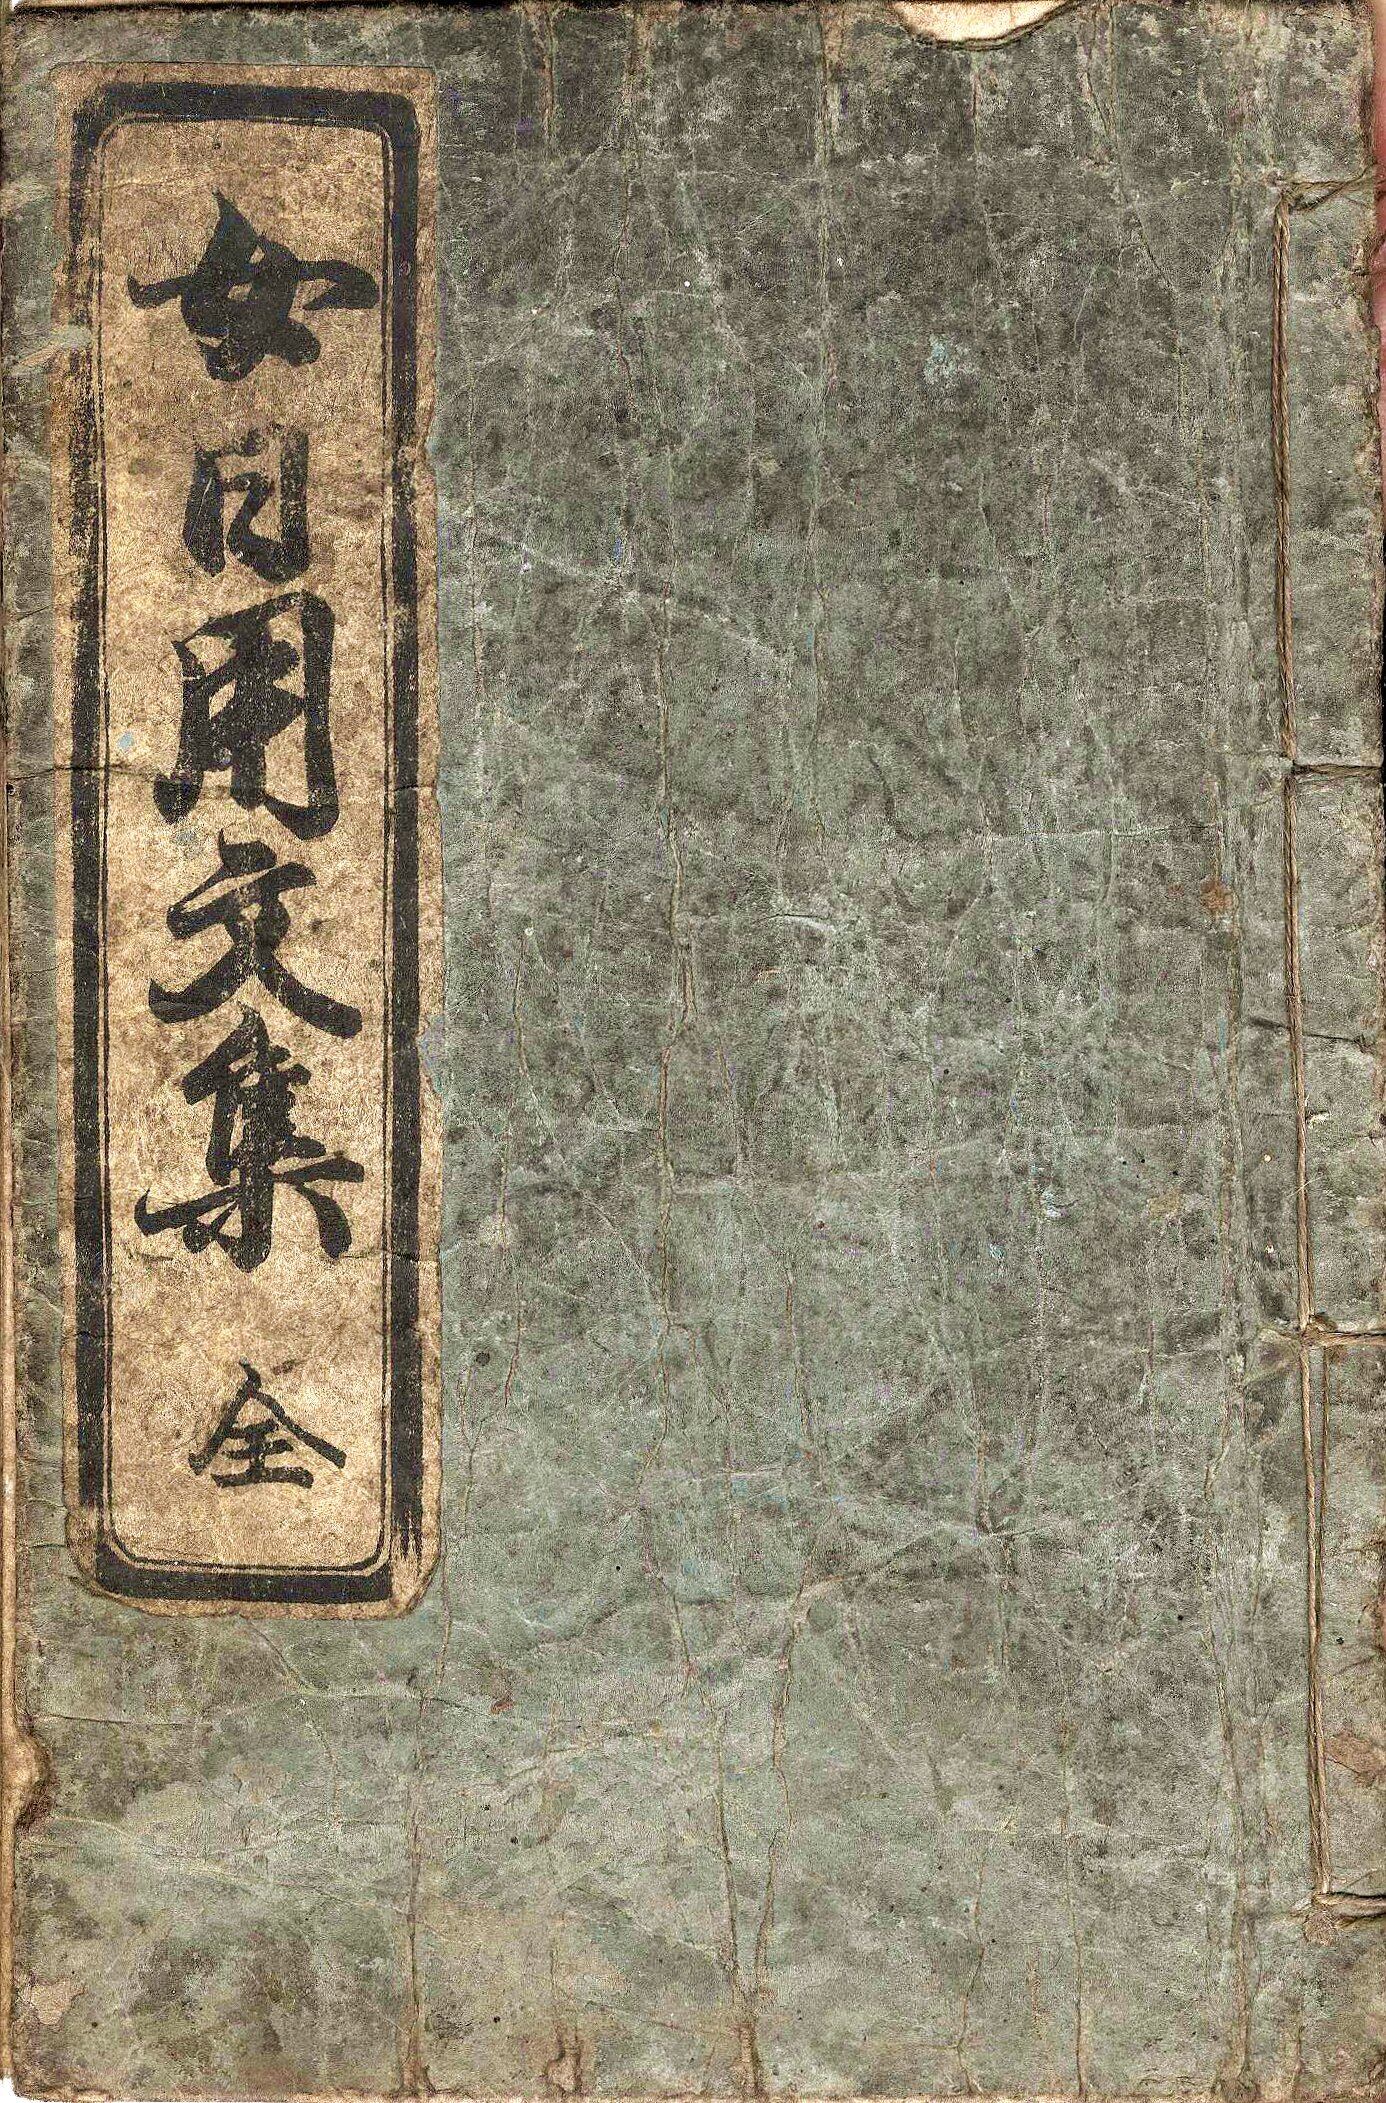 女日用文集 全